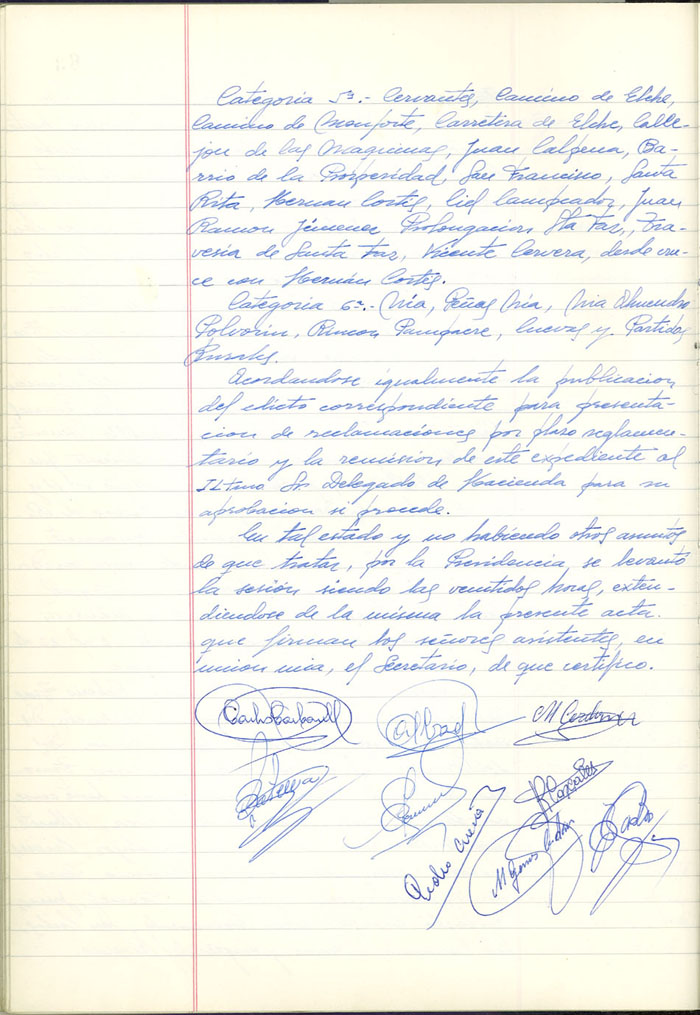 Categoria 5ª.- Cervantes, Camino de Elche,
Camino de Monforte, Carretera de Elche, Calle-
jon de las Maquinas, Juan Calpena, Ba-
rrio de la Prosperidad, San Francisco, Santa
Rita, Hernan Cortés, Cid Campeador, Juan
Ramon Jimenez, Prolongacion Sta Faz, Tra-
vesia de Santa Faz, Vicente Cervera, desde cru-
ce con Hernán Cortés.
Categoria 6ª.- Mía,
Polvorin, Rincon, Cuevas y Partidas
Rurales.
Acordandose igualmente la publicacion
del edicto correspondiente para presenta-
cion de reclamaciones por plazo reglamen-
tario y la remisión de este expediente al
Iltmo Sr Delegado de Hacienda para su
aprobacion si procede.
En tal estado y no habiendo otros asuntos
de que tratar, por la Presidencia, se levantó
la sesión siendo las ventidos horas, exten-
diendose de la misma la presente acta
que firman los señores asistentes, en
union mia, el Secretario, de que certifico.